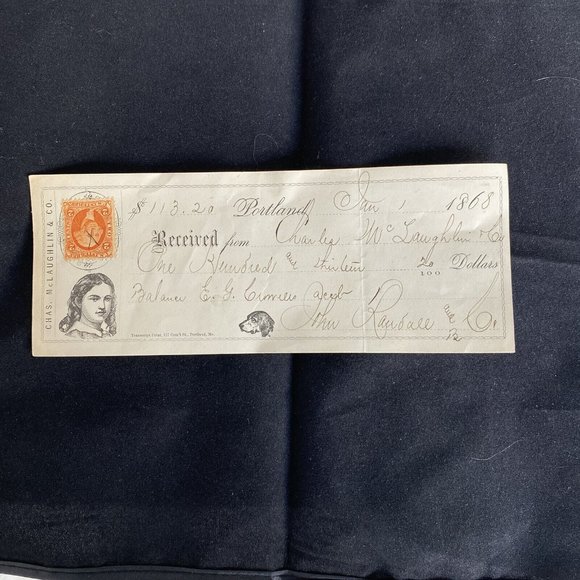 CHAS. McLAUGHLIN & CO.
$113.20 Portland, Jan 1 1868
Received from Charles McLaughlin & Co
One Hundred and thirteen 20/100 Dollars
Balance E. G.
John Randall and Co.
Transcript Print, Portland, Me.